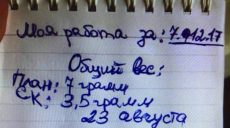 Моя работа за: 7.012.17
Общий вес:
План: 7 грамм
СК: 3,5 грамм
23 августа